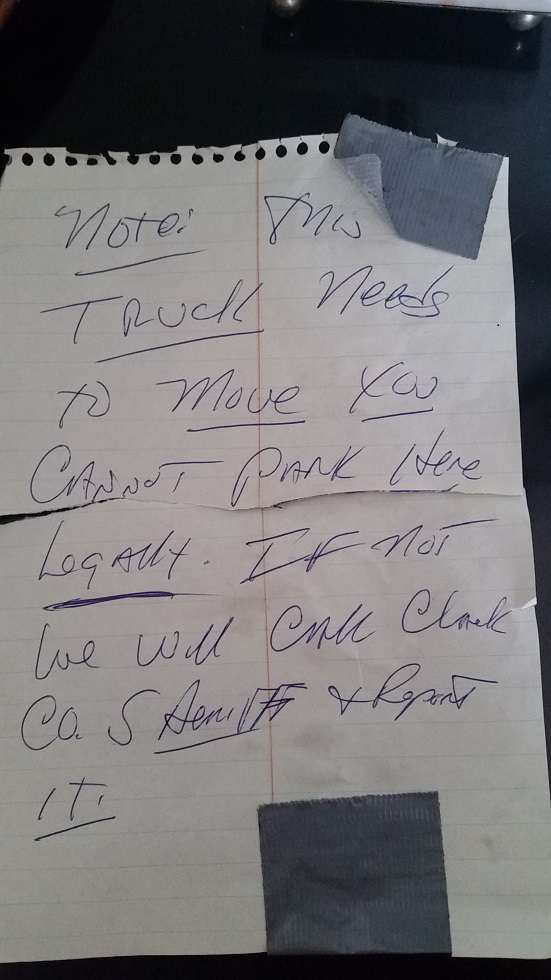 Note: This
TRUCK Needs
to Move You
CANNOT PARK Here
LegAlly. IF NOT
We Will CAll Clark
Co. SHeriFF & Report
IT.